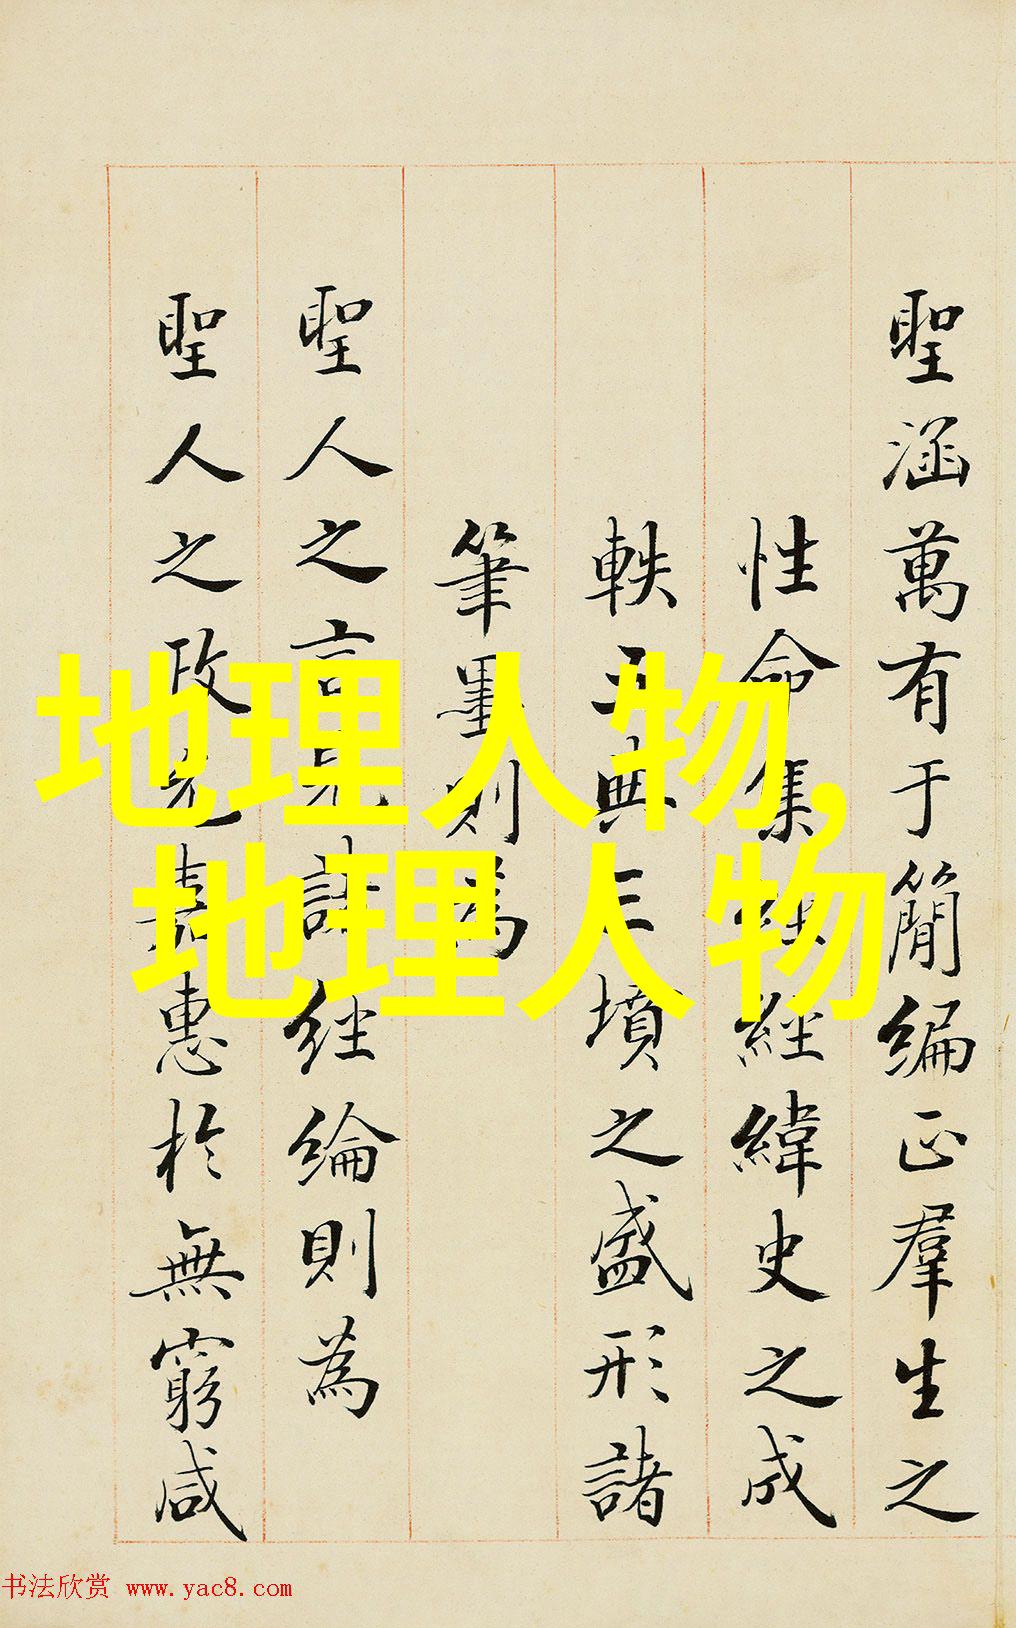 地理人物,
地理人物
聖涵萬有于簡編正羣生之
性命集經緯史之成
軼五典三墳之盛形諸
筆墨則為
聖人之言見諸經綸則為
聖人之政嘉惠於無窮咸
书法欣赏 www.yac8.com